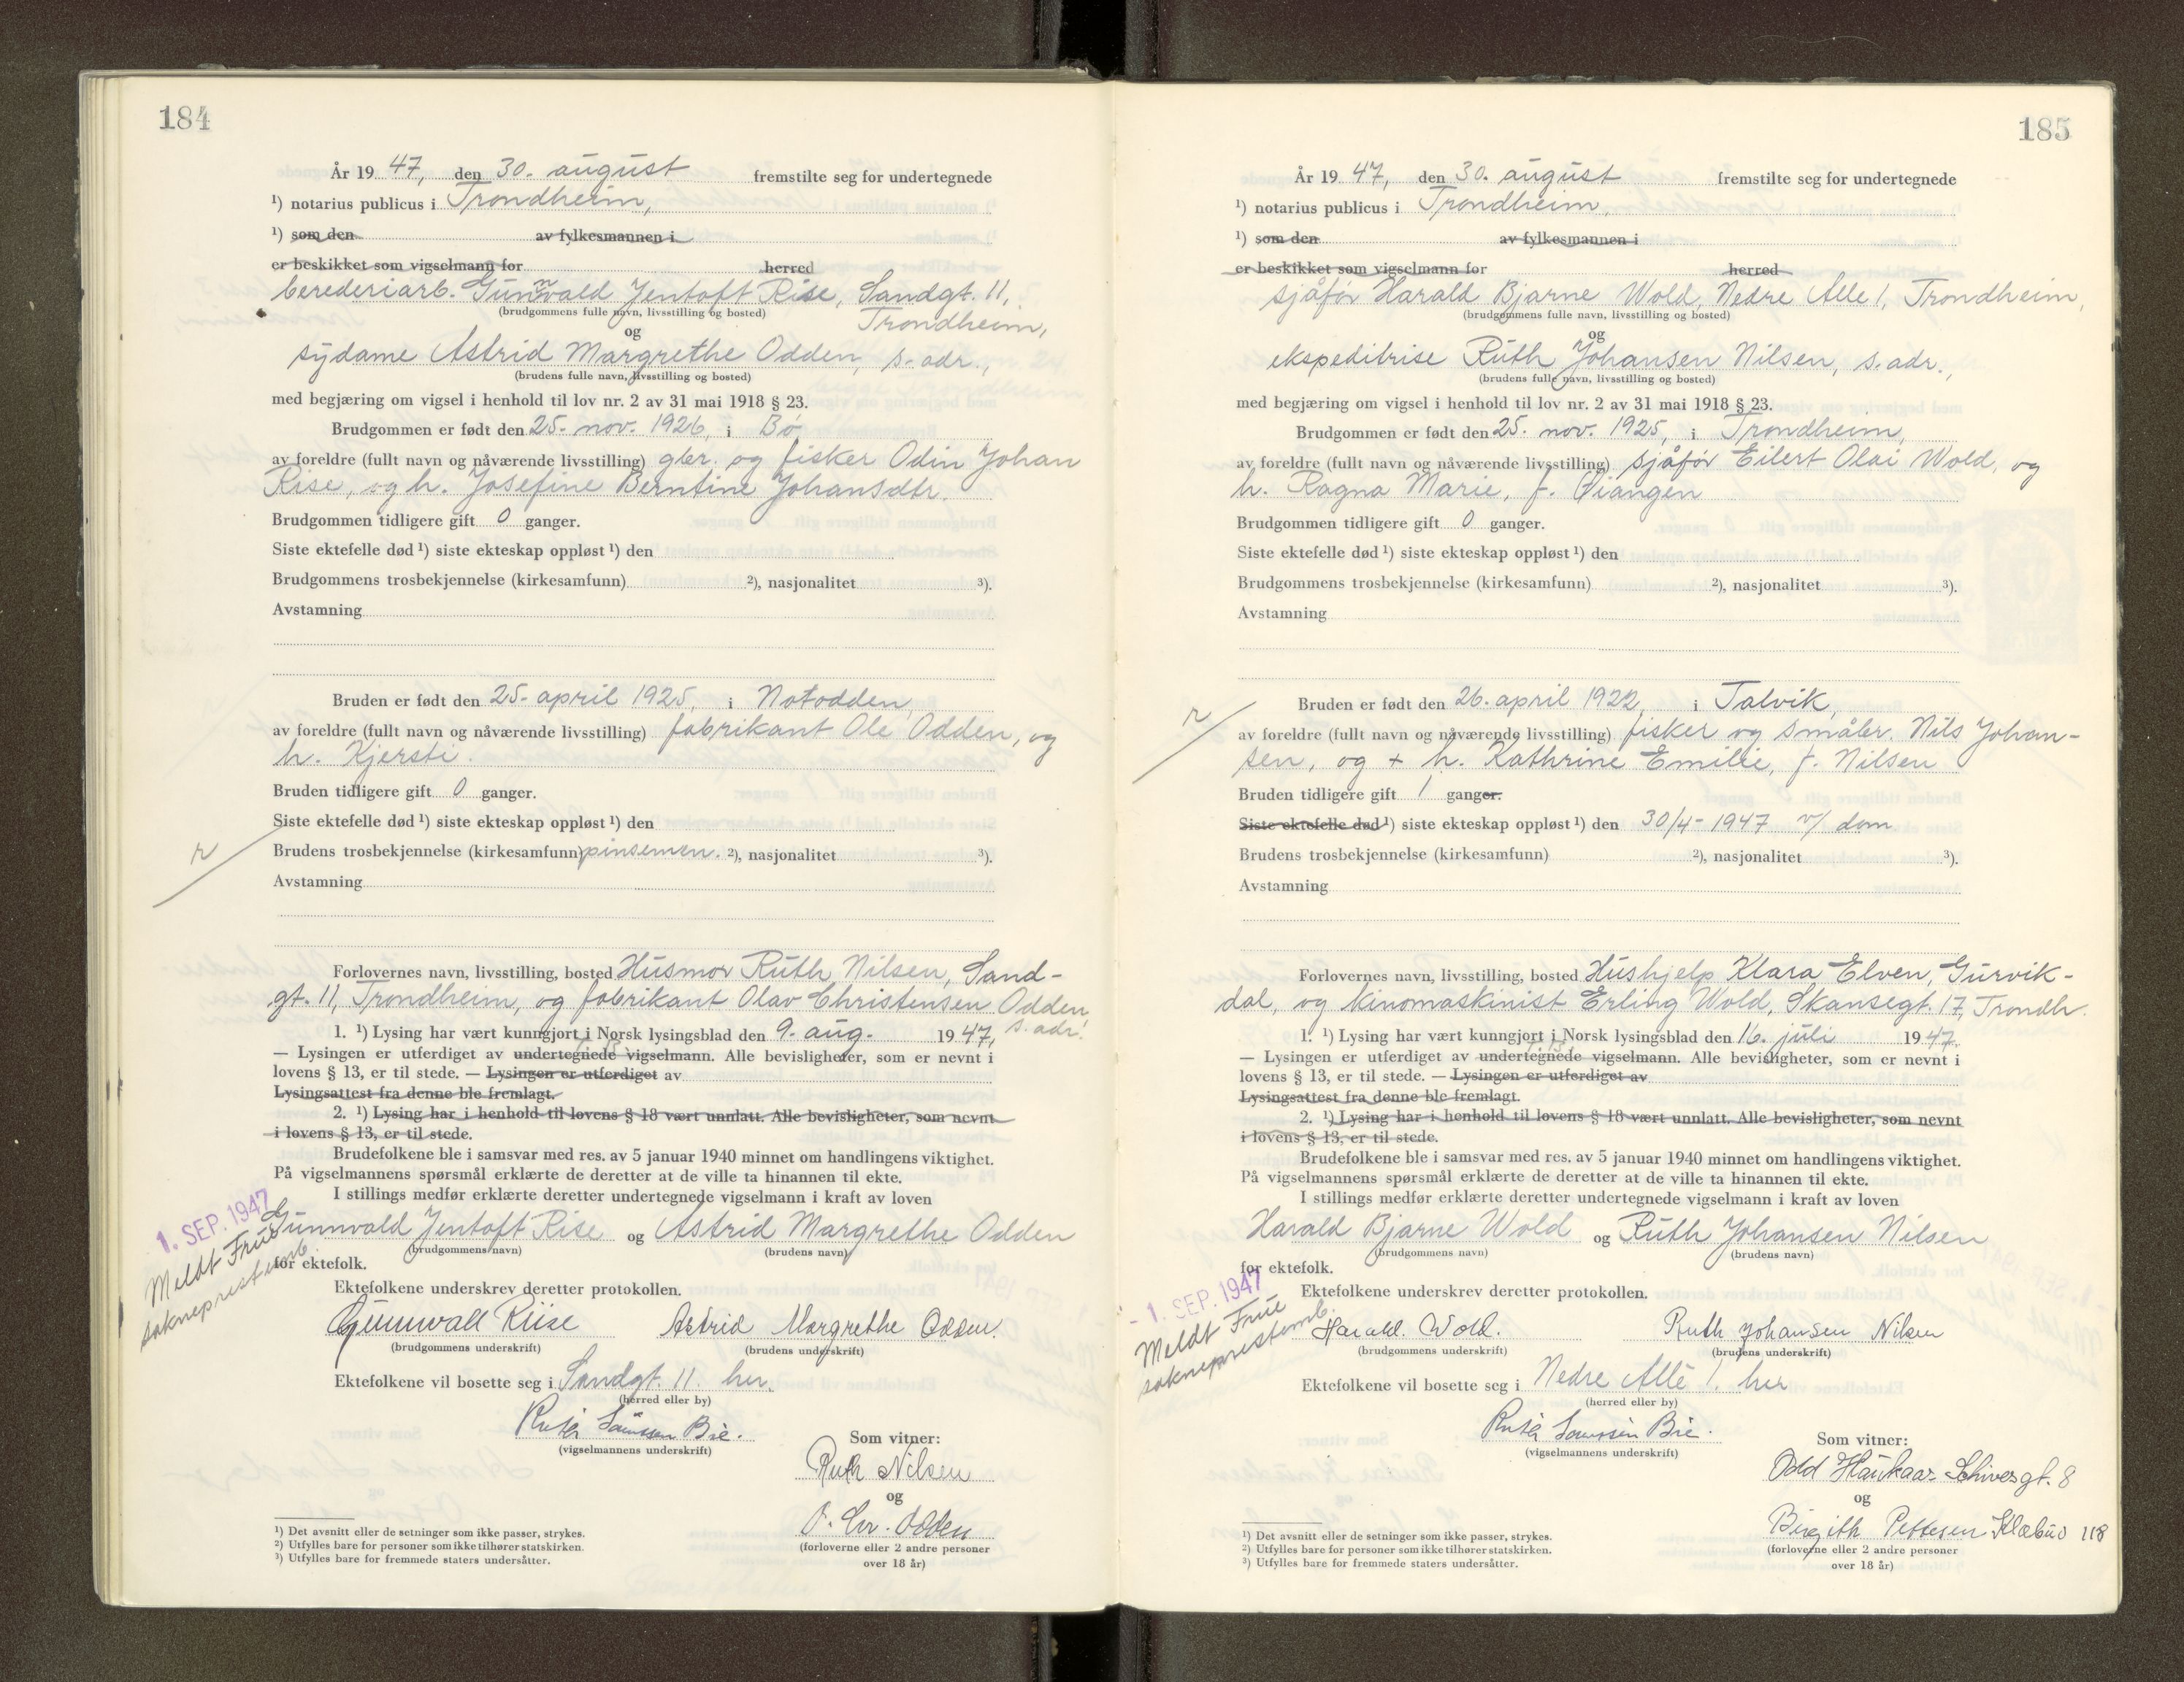 184
År 19 47, den 30. august fremstilte seg for undertegnede
¹) notarius publicus i Trondheim,
¹) som den av fylkesmannen i
er beskikket som vigselmann for herred
berederiarb. Gunnvald Jentoft Rise, Sandgt. 11,
(brudgommens fulle navn, livsstilling og bosted) Trondheim,
og
sydame Astrid Margrethe Odden, s. adr.,
(brudens fulle navn, livsstilling og bosted)
med begjæring om vigsel i henhold til lov nr. 2 av 31 mai 1918 § 23.
Brudgommen er født den 25. nov. 1926, i Bø
av foreldre (fullt navn og nåværende livsstilling) gbr. og fisker Odin Johan
Rise, og h. Josefine Berntine Johansdtr.
Brudgommen tidligere gift 0 ganger.
Siste ektefelle død ¹) siste ekteskap oppløst ¹) den
Brudgommens trosbekjennelse (kirkesamfunn) ²), nasjonalitet ³).
Avstamning
Bruden er født den 25. april 1925, i Notodden,
av foreldre (fullt navn og nåværende livsstilling) fabrikant Ole Odden, og
h. Kjersti.
Bruden tidligere gift 0 ganger.
Siste ektefelle død ¹) siste ekteskap oppløst ¹) den
r
Brudens trosbekjennelse (kirkesamfunn) pinsemen. ²), nasjonalitet ³).
Avstamning
Forlovernes navn, livsstilling, bosted Husmor Ruth Nilsen, Sand-
gt. 11, Trondheim, og fabrikant Olav Christensen Odden
s. adr.
1. ¹) Lysing har vært kunngjort i Norsk lysingsblad den 9. aug. 19 47,
— Lysingen er utferdiget av undertegnede vigselmann. Alle bevisligheter, som er nevnt i
lovens § 13, er til stede. — Lysingen er utferdiget av
Lysingsattest fra denne ble fremlagt.
2. ¹) Lysing har i henhold til lovens § 18 vært unnlatt. Alle bevisligheter, som nevnt
i lovens § 13, er til stede.
Brudefolkene ble i samsvar med res. av 5 januar 1940 minnet om handlingens viktighet.
På vigselmannens spørsmål erklærte de deretter at de ville ta hinannen til ekte.
I stillings medfør erklærte deretter undertegnede vigselmann i kraft av loven
1. SEP. 1947
Gunnvald Jentoft Rise og Astrid Margrethe Odden
(brudgommens navn) (brudens navn)
Meldt Frue
sokneprestemb.
for ektefolk.
Ektefolkene underskrev deretter protokollen.
Gunnvall Riise Astrid Margrethe Odden.
(brudgommens underskrift) (brudens underskrift)
Ektefolkene vil bosette seg i Sandgt. 11. her.
(herred eller by)
Bie.
(vigselmannens underskrift)
Som vitner:
Ruth Nilsen
og
O. Chr. Odden
(forloverne eller 2 andre personer
over 18 år)
¹) Det avsnitt eller de setninger som ikke passer, strykes.
²) Utfylles bare for personer som ikke tilhører statskirken.
³) Utfylles bare for fremmede staters undersåtter.
185
År 19 47, den 30. august fremstilte seg for undertegnede
¹) notarius publicus i Trondheim,
¹) som den av fylkesmannen i
er beskikket som vigselmann for herred
sjåfør Harald Bjarne Wold, Nedre Alle 1, Trondheim,
(brudgommens fulle navn, livsstilling og bosted)
og
ekspeditrise Ruth Johansen Nilsen, s. adr.,
(brudens fulle navn, livsstilling og bosted)
med begjæring om vigsel i henhold til lov nr. 2 av 31 mai 1918 § 23.
Brudgommen er født den 25. nov. 1925, i Trondheim,
av foreldre (fullt navn og nåværende livsstilling) sjåfør Eilert Olai Wold, og
h. Ragna Marie, f. Øiangen
Brudgommen tidligere gift 0 ganger.
Siste ektefelle død ¹) siste ekteskap oppløst ¹) den
Brudgommens trosbekjennelse (kirkesamfunn) ²), nasjonalitet ³).
Avstamning
Bruden er født den 26. april 1922, i Talvik,
r
av foreldre (fullt navn og nåværende livsstilling) fisker og småbr. Nils Johan-
sen, og + h. Kathrine Emilie, f. Nilsen
Bruden tidligere gift 1 ganger.
Siste ektefelle død ¹) siste ekteskap oppløst ¹) den 30/4- 1947 v/ dom
Brudens trosbekjennelse (kirkesamfunn) ²), nasjonalitet ³).
Avstamning
Forlovernes navn, livsstilling, bosted Hushjelp Klara Elven, Gurvik-
dal, og kinomaskinist Erling Wold, Skansegt. 17, Trondh.
1. ¹) Lysing har vært kunngjort i Norsk lysingsblad den 16. juli 19 47.
— Lysingen er utferdiget av undertegnede vigselmann. Alle bevisligheter, som er nevnt i
lovens § 13, er til stede. — Lysingen er utferdiget av
Lysingsattest fra denne ble fremlagt.
2. ¹) Lysing har i henhold til lovens § 18 vært unnlatt. Alle bevisligheter, som nevnt
i lovens § 13, er til stede.
Brudefolkene ble i samsvar med res. av 5 januar 1940 minnet om handlingens viktighet.
På vigselmannens spørsmål erklærte de deretter at de ville ta hinannen til ekte.
I stillings medfør erklærte deretter undertegnede vigselmann i kraft av loven
Harald Bjarne Wold og Ruth Johansen Nilsen
(brudgommens navn) (brudens navn)
for ektefolk.
- 1. SEP. 1947
Meldt Frue
sokneprestemb.
Ektefolkene underskrev deretter protokollen.
Harald. Wold. Ruth Johansen Nilsen
(brudgommens underskrift) (brudens underskrift)
Ektefolkene vil bosette seg i Nedre Allè 1. her
(herred eller by)
Bie.
(vigselmannens underskrift)
Som vitner:
Odd Haukaas Schivesgt. 8
og
Birgith Pettesen Klæbuv 118
(forloverne eller 2 andre personer
over 18 år)
¹) Det avsnitt eller de setninger som ikke passer, strykes.
²) Utfylles bare for personer som ikke tilhører statskirken.
³) Utfylles bare for fremmede staters undersåtter.